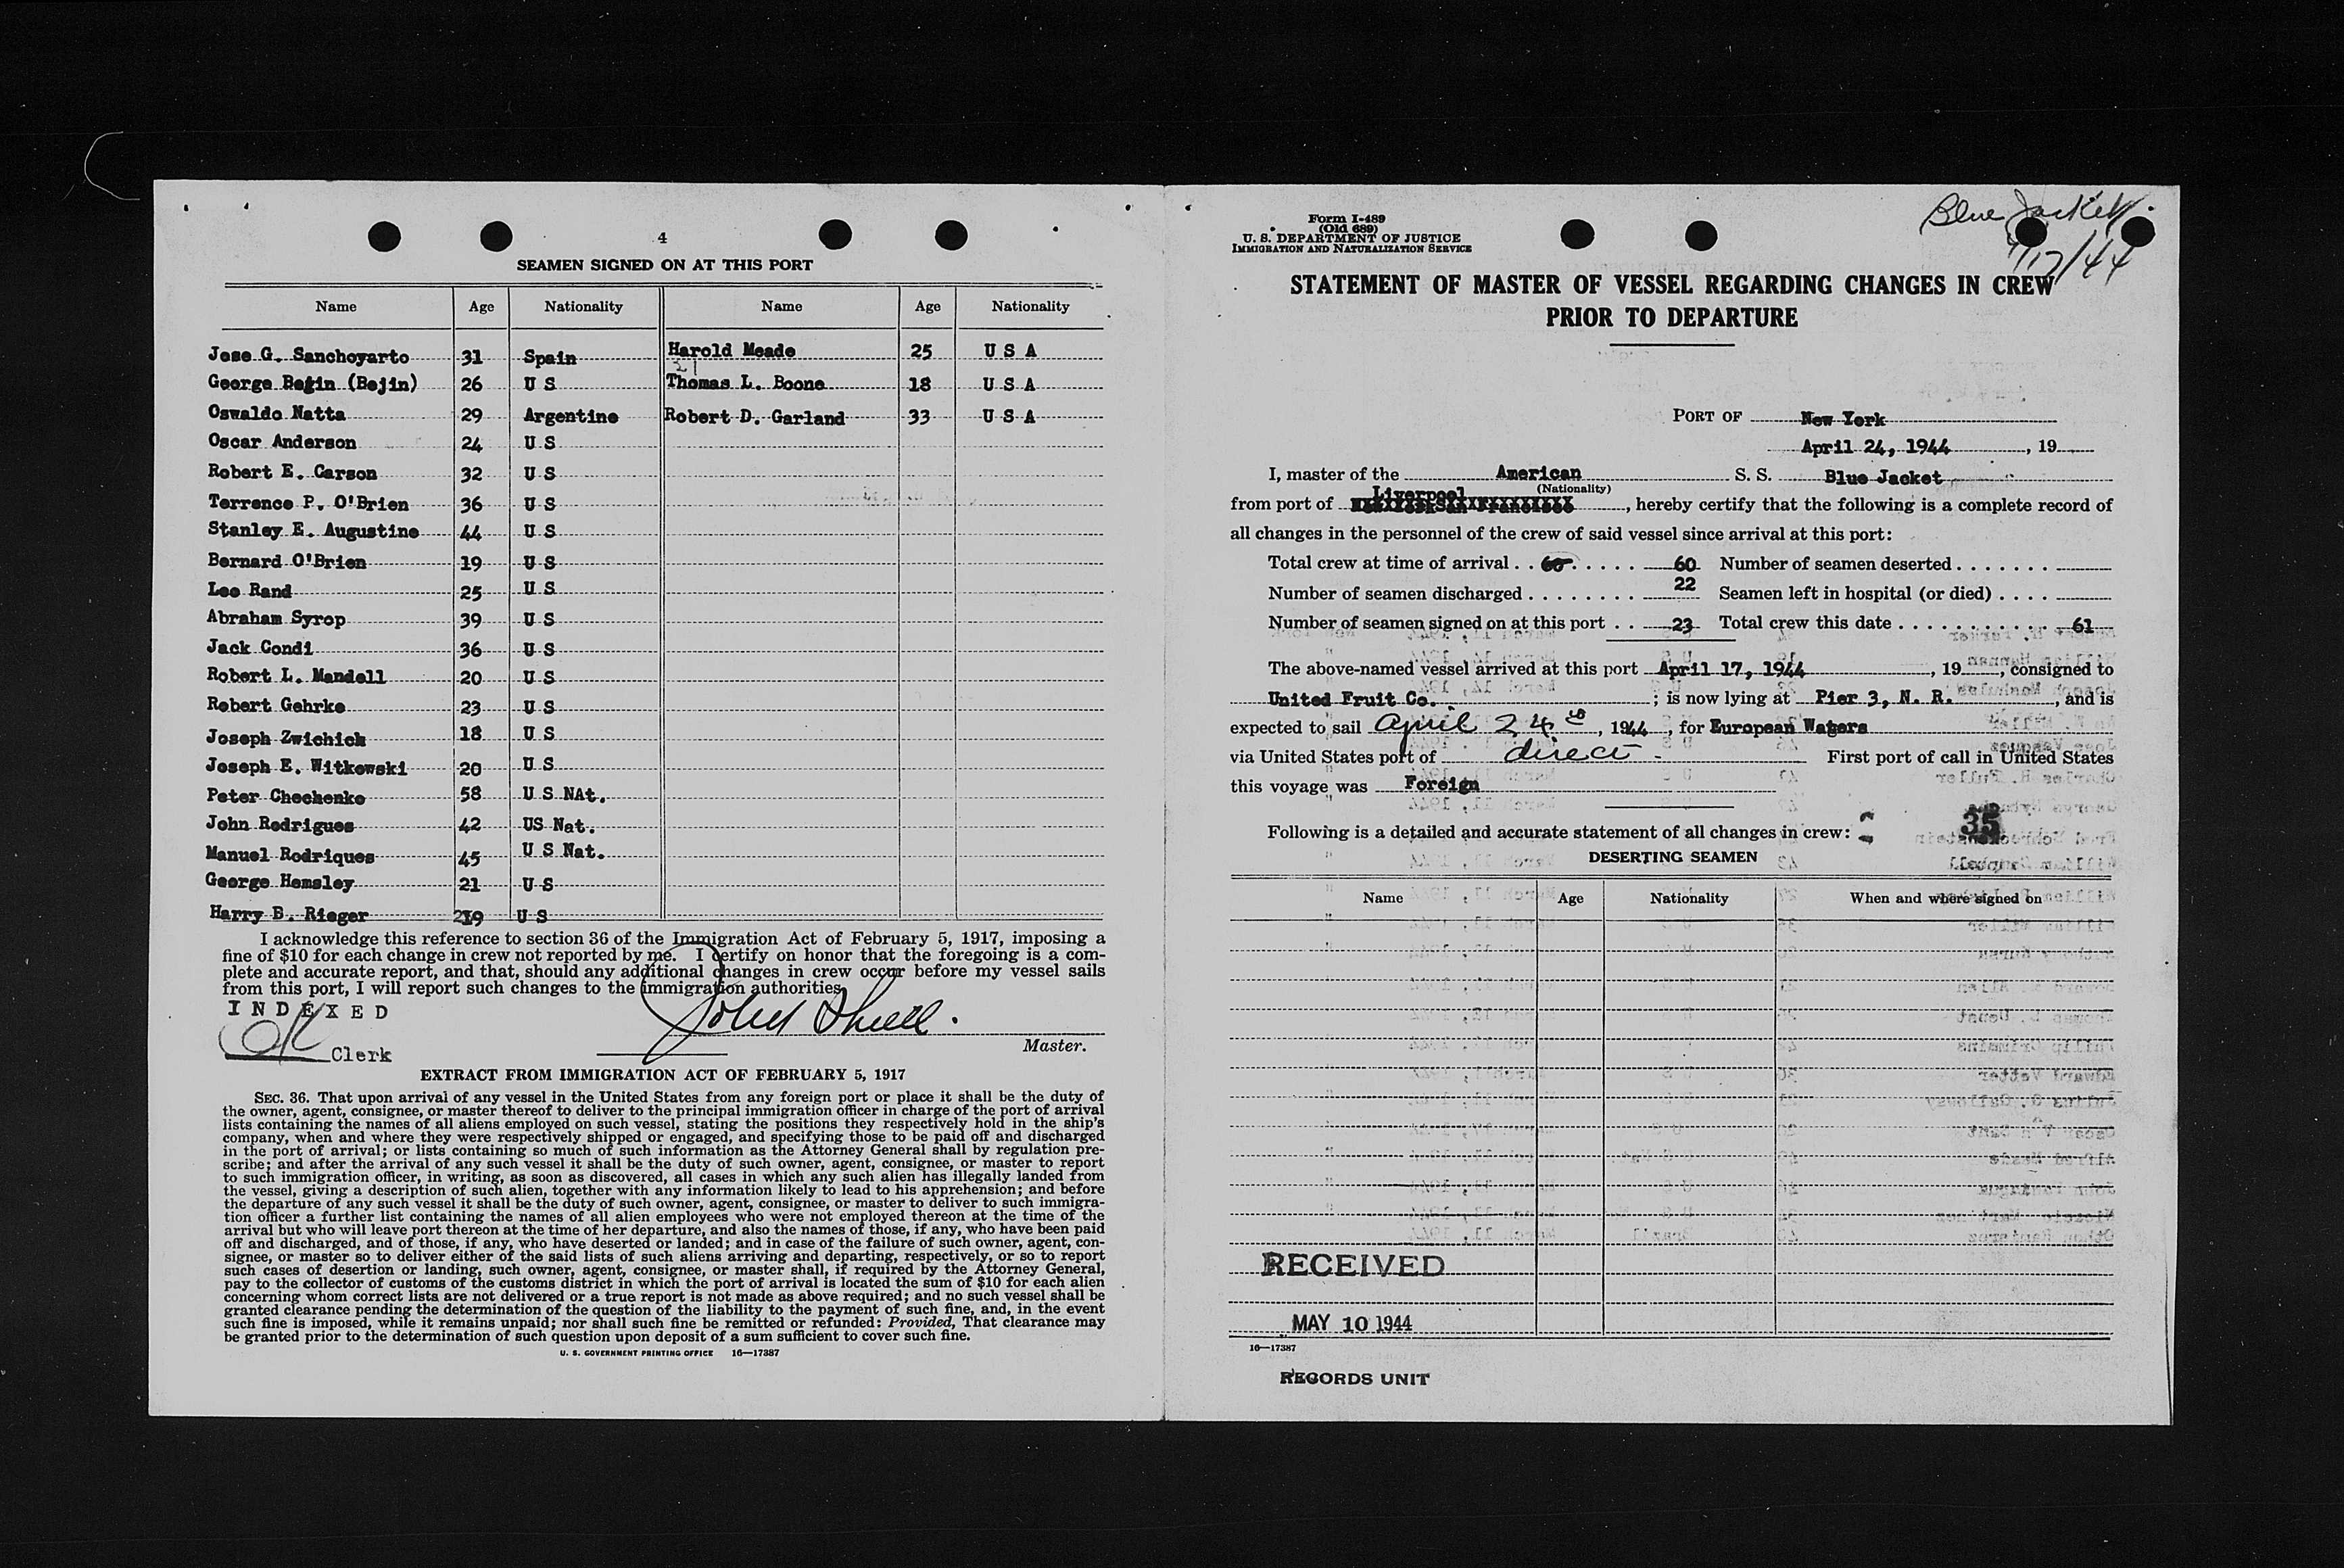 4
SEAMEN SIGNED ON AT THIS PORT
Name Age Nationality Name Age Nationality
Jose G. Sanchoyarto 31 Spain Harold Meade 25 U S A
21
George Begin (Bejin) 26 U S Thomas L. Boone 18 U S A
Oswaldo Natta 29 Argentine Robert D. Garland 33 U S A
Oscar Anderson 24 U S
Robert E. Carson 32 U S
Terrence P. O'Brien 36 U S
Stanley E. Augustine 44 U S
Bernard O'Brien 19 U S
Lee Rand 25 U S
Abraham Syrop 39 U S
Jack Condi 36 U S
Robert L. Mandell 20 U S
Robert Gehrke 23 U S
Joseph Zwichick 18 U S
Joseph E. Witkowski 20 U S
Peter Chechenke 58 U S NAt.
John Rodrigues 42 US Nat.
Manuel Rodriques 45 U S Nat.
George Hemsley 21 U S
Harry B. Rieger 19 U S
I acknowledge this reference to section 36 of the Immigration Act of February 5, 1917, imposing a
fine of $10 for each change in crew not reported by me. I certify on honor that the foregoing is a com-
plete and accurate report, and that, should any additional changes in crew occur before my vessel sails
from this port, I will report such changes to the immigration authorities.
INDEXED
OK Clerk
John Shell.
Master.
EXTRACT FROM IMMIGRATION ACT OF FEBRUARY 5, 1917
SEC. 36. That upon arrival of any vessel in the United States from any foreign port or place it shall be the duty of
the owner, agent, consignee, or master thereof to deliver to the principal immigration officer in charge of the port of arrival
lists containing the names of all aliens employed on such vessel, stating the positions they respectively hold in the ship's
company, when and where they were respectively shipped or engaged, and specifying those to be paid off and discharged
in the port of arrival; or lists containing so much of such information as the Attorney General shall by regulation pre-
scribe; and after the arrival of any such vessel it shall be the duty of such owner, agent, consignee, or master to report
to such immigration officer, in writing, as soon as discovered, all cases in which any such alien has illegally landed from
the vessel, giving a description of such alien, together with any information likely to lead to his apprehension; and before
the departure of any such vessel it shall be the duty of such owner, agent, consignee, or master to deliver to such immigra-
tion officer a further list containing the names of all alien employees who were not employed thereon at the time of the
arrival but who will leave port thereon at the time of her departure, and also the names of those, if any, who have been paid
off and discharged, and of those, if any, who have deserted or landed; and in case of the failure of such owner, agent, con-
signee, or master so to deliver either of the said lists of such aliens arriving and departing, respectively, or so to report
such cases of desertion or landing, such owner, agent, consignee, or master shall, if required by the Attorney General,
pay to the collector of customs of the customs district in which the port of arrival is located the sum of $10 for each alien
concerning whom correct lists are not delivered or a true report is not made as above required; and no such vessel shall be
granted clearance pending the determination of the question of the liability to the payment of such fine, and, in the event
such fine is imposed, while it remains unpaid; nor shall such fine be remitted or refunded: Provided, That clearance may
be granted prior to the determination of such question upon deposit of a sum sufficient to cover such fine.
U. S. GOVERNMENT PRINTING OFFICE 16—17387
Form I-489
(Old 689)
U. S. DEPARTMENT OF JUSTICE
IMMIGRATION AND NATURALIZATION SERVICE
Blue Jacket
4/17/44
STATEMENT OF MASTER OF VESSEL REGARDING CHANGES IN CREW
PRIOR TO DEPARTURE
PORT OF New York
April 24, 1944, 19
I, master of the American S. S. Blue Jacket
(Nationality)
from port of Liverpool, hereby certify that the following is a complete record of
all changes in the personnel of the crew of said vessel since arrival at this port:
Total crew at time of arrival . . 60 Number of seamen deserted
Number of seamen discharged 22 Seamen left in hospital (or died)
Number of seamen signed on at this port . . 23 Total crew this date 61
The above-named vessel arrived at this port April 17, 1944, 19, consigned to
United Fruit Co. ; is now lying at Pier 3, N. R. , and is
expected to sail April 24th, 1944, for European Waters
via United States port of direct. First port of call in United States
this voyage was Foreign
Following is a detailed and accurate statement of all changes in crew: 35
DESERTING SEAMEN
Name Age Nationality When and where signed on
RECEIVED
MAY 10 1944
16—17387
RECORDS UNIT